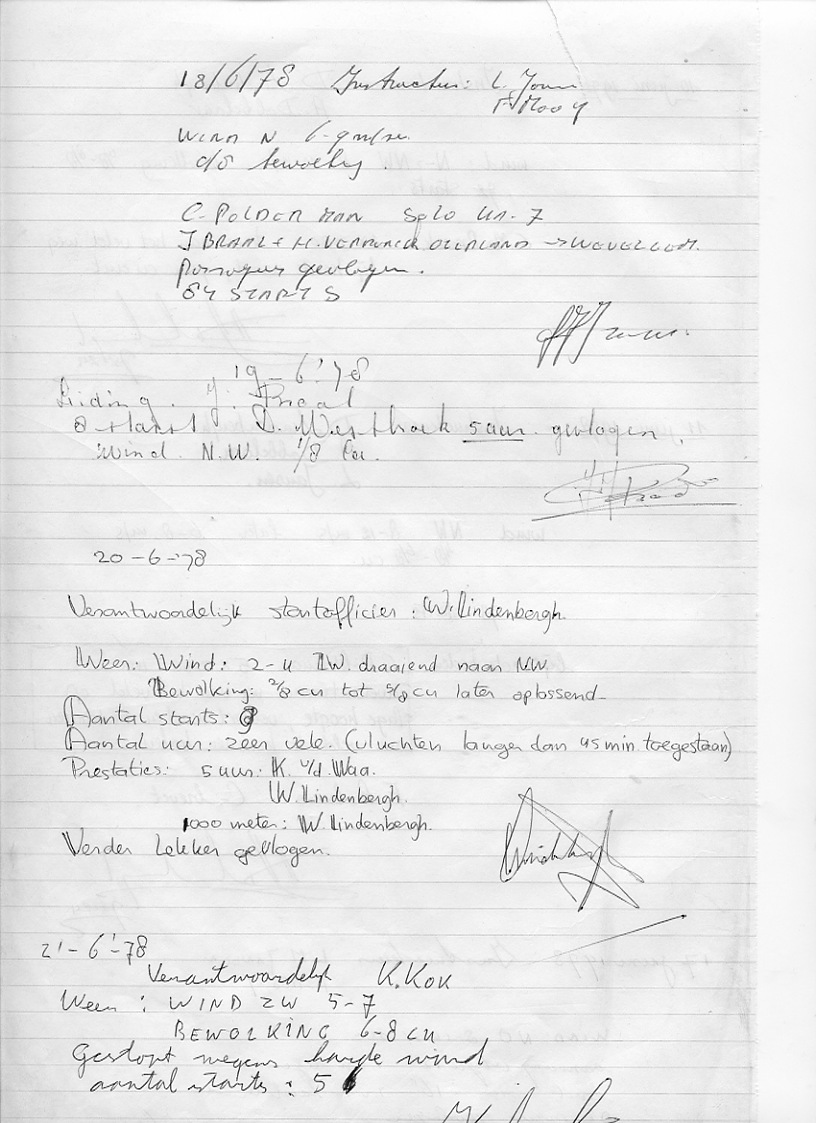 18/6/78 Instructeur: L.
F. Mooy
WIND N 6-9 m/se.
d/8 bewolking.
C. POLDERMAN solo
J BRAAL & H. OVERLAND → WEVELGEM.
Passagiers gevlogen.
84 STARTS
19-6-'78
Leiding. J. Praal
8 starts D. Westhoek 5 uur gevlogen.
Wind. N.W. 1/8 Cu.
20-6-'78
Verantwoordelijk startofficier: W. Lindenbergh.
Weer: Wind: 2-4 W. draaiend naar NW.
Bewolking: 2/8 cu tot 5/8 cu later oplossend-
Aantal starts:
Aantal uur: zeer vele. (vluchten langer dan 45 min. toegestaan)
Prestaties: 5 uur: K. v/d. Waa.
W. Lindenbergh.
1000 meter: W. Lindenbergh.
Verder Lekker gevlogen.
21-6-'78
Verantwoordelijk K. KOK
Weer: WIND ZW 5-7
BEWOLKING 6-8 cu
Gestopt wegens harde wind
aantal starts: 5